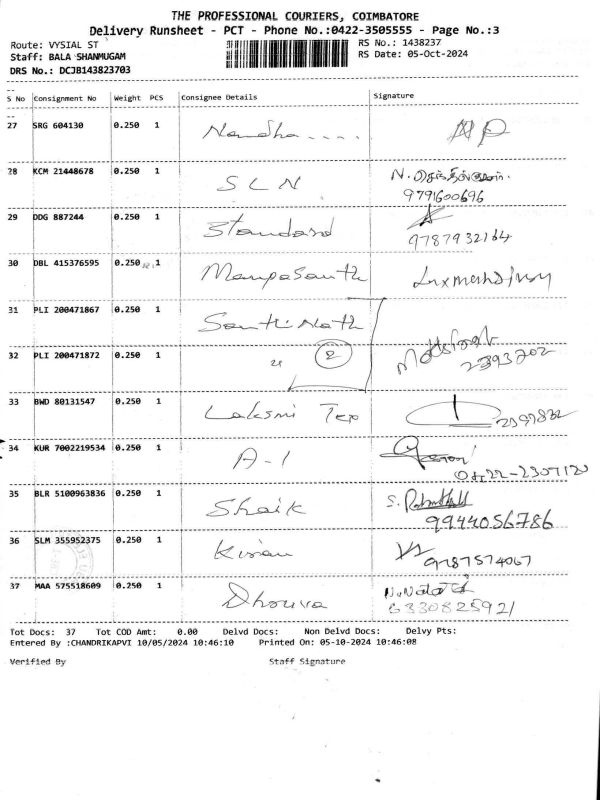 THE PROFESSIONAL COURIERS, COIMBATORE
Delivery Runsheet - PCT - Phone No.:0422-3505555 - Page No.:3
Route: VYSIAL ST
Staff: BALA SHANMUGAM
DRS No.: DCJB143823703
RS No.: 1438237
RS Date: 05-Oct-2024
S No Consignment No Weight PCS Consignee Details Signature
27 SRG 604130 0.250 1 Nandha....
28 KCM 21448678 0.250 1 SLN N. செந்தில்குமார்.
9791600696
29 DDG 887244 0.250 1 Standard
9787932164
30 DBL 415376595 0.250 1
31 PLI 200471867 0.250 1 Santhi Nath
32 PLI 200471872 0.250 1 " 2
2393202
33 BWD 80131547 0.250 1 Laksmi Tex
34 KUR 7002219534 0.250 1 A-1
0422-2307120
35 BLR 5100963836 0.250 1 Shaik S.
9944056786
36 SLM 355952375 0.250 1 Kiran
9787574067
37 MAA 575518609 0.250 1 Dhruva
6330825921
Tot Docs: 37 Tot COD Amt: 0.00 Delvd Docs: Non Delvd Docs: Delvy Pts:
Entered By :CHANDRIKAPVI 10/05/2024 10:46:10 Printed On: 05-10-2024 10:46:08
Verified By Staff Signature